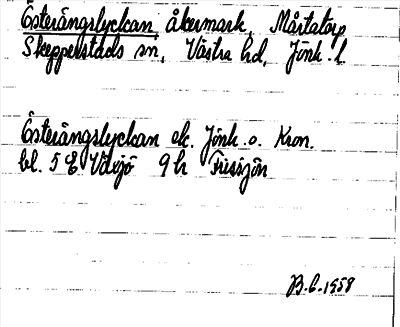 Österängslyckan, åkermark, Mårtatorp
Skepperstads sn, Västra hd, Jönk. l.
Österängslyckan ek. Jönk. o. Kron.
bl. 5 E Växjö 9 h Fussjön
B.L. 1958